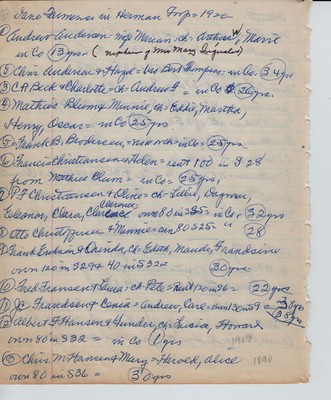 Dane Farmers in Herman Twp = 1920
① Andrew Andersen = wife Marian, ch = Arthur W, Marie
in Co 13 yrs. (nephew of Mrs Mary
② Chris Andersen & = in Co 34 yrs
③ C A Beck & Charlotte = ch = Andrew J = in Co 36 yrs.
④ Mathias Blum & Minnie, ch = Eddie, Martha,
Henry, Oscar = in Co 25 yrs
⑤ Frank B. Brodersen, = in Co = 25 yrs.
⑥ Francis Christiansen & Helen = rent 100 in S 28
from Mathias Blum = in Co = 25 yrs,
P J Christiansen & Oline = ch = Lillie, Dagmar,
Eleonor, Clara, Clarence own 80 in S 25 = in Co = 32 yrs
Otto & Minnie = own 80 S 25 = in 28
Frank & Orinda, ch = Edith, Maude,
own 120 in S 29 & 40 in S 32 30 yrs
Fred Fransen & ch = Pete = Rent 120 in 22 yrs
J C Frandsen & = Andrew, Carl = own 130 in S 9 = 38 yrs
⑫ Albert F Hansen & Gunder, ch = Lucia, Howard
own 80 in S 32 = in Co 1 yrs
⑬ Chris M Hansen & Mary = Harold, Alice 1890
own 80 in S 36 = 30 yrs